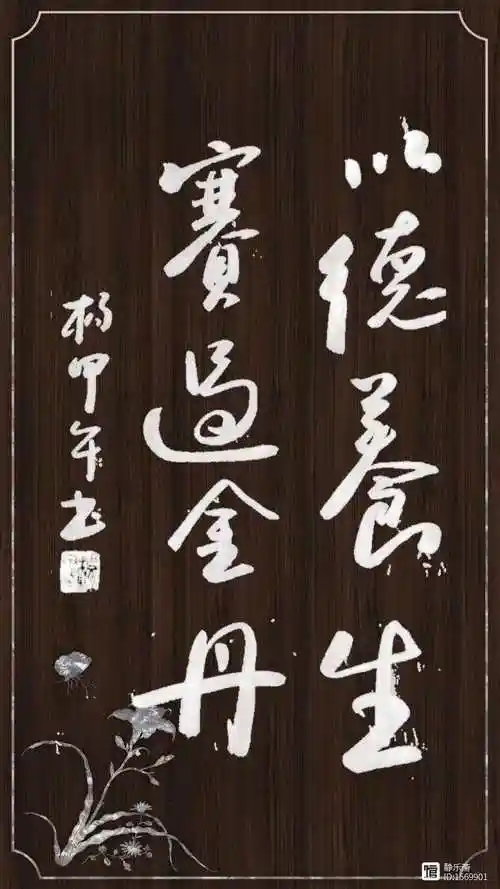 以德養生
賽過金丹
楊甲午书
静乐斋
ID:1569901